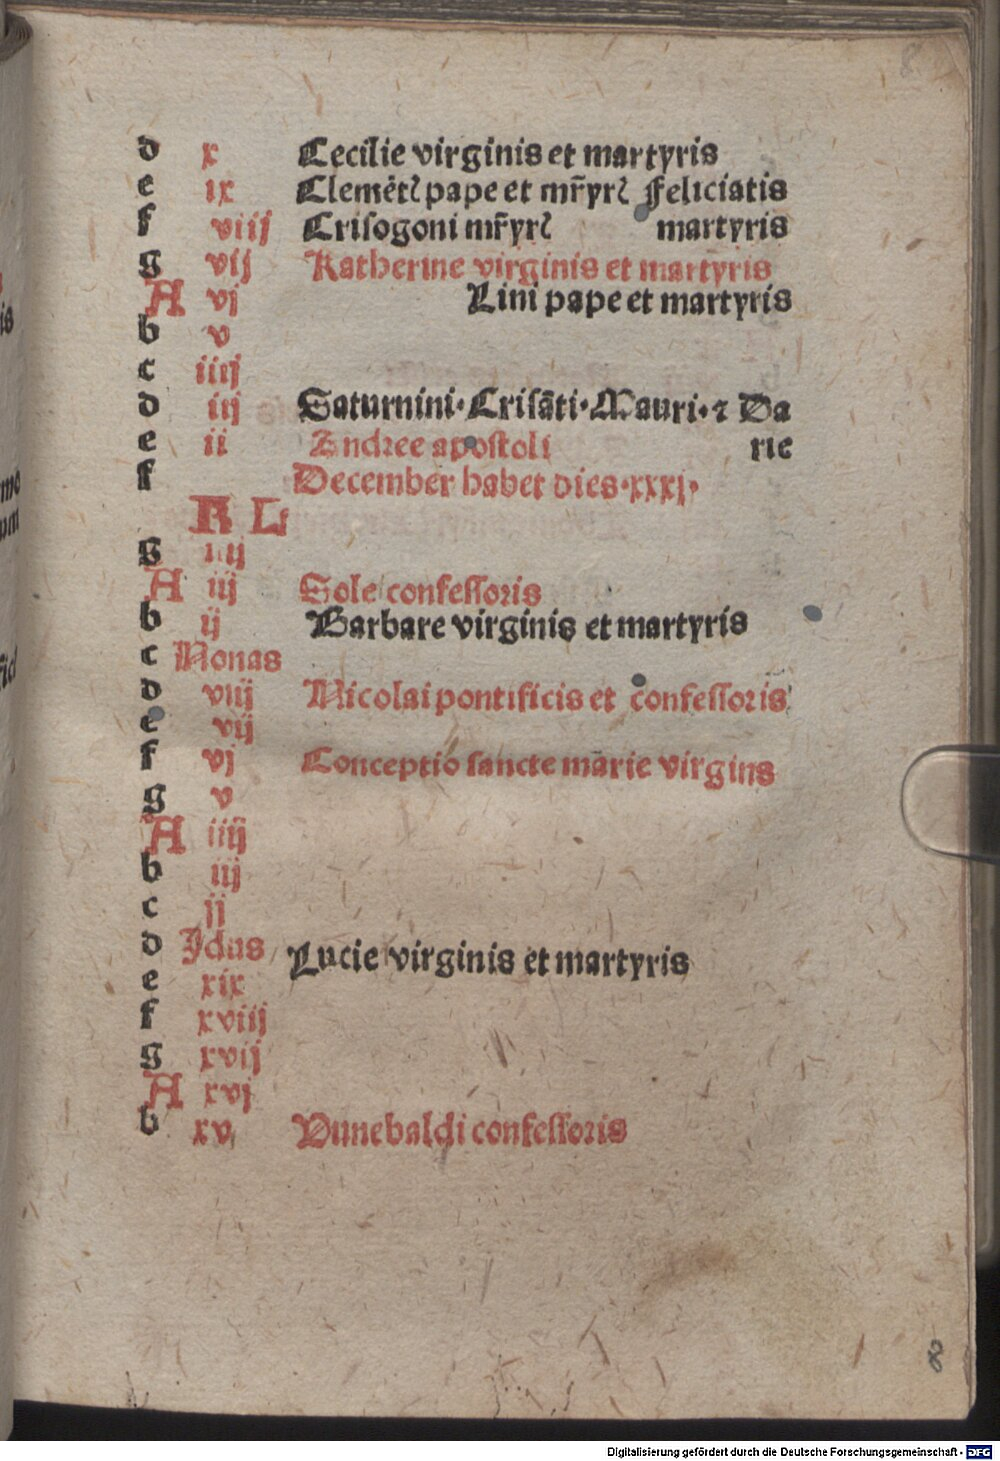 8
d x Cecilie virginis et martyris
e ix Clemētꝭ pape et mr̄yrꝭ Feliciatis
f viij Criſogoni mr̄yrꝭ martyris
g vij Katherine virginis et martyris
A vj Lini pape et martyris
b v
c iiij
d iij Saturnini·Criſāti·Mauri·⁊ Da
e ii Andree apoſtoli rie
f December habet dies·xxxj·
K L
g iiij
A iij Sole confeſſoris
b ij Barbare virginis et martyris
c Nonas
d viij Nicolai pontificis et confeſſoris
e vij
f vj Conceptio ſancte marie virgins
g v
A iiij
b iij
c ij
d Idus Lucie virginis et martyris
e xix
f xviij
g xvij
A xvj
b xv Vunebaldi confeſſoris
8
Digitalisierung gefördert durch die Deutsche Forschungsgemeinschaft - DFG